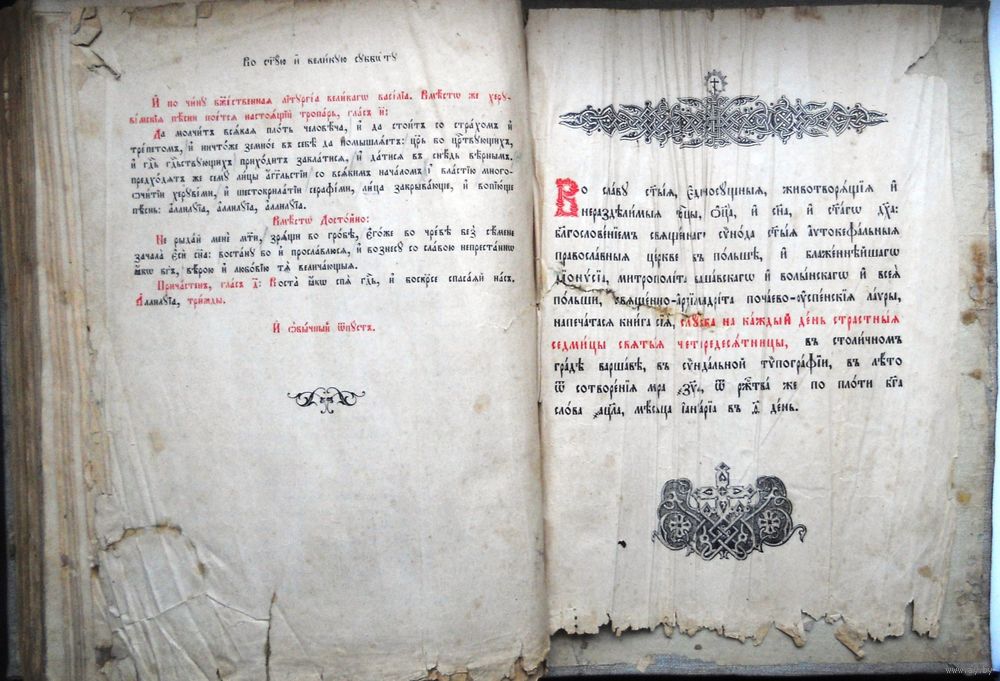 Во ст҃ꙋю и҆ вели́кꙋю сꙋббѡ́тꙋ
И҆ по чи́нꙋ бж҃е́ственнаѧ літꙋргі́а вели́кагѡ васі́лїа. Вмѣ́стѡ же херꙋ-
ві́мскїѧ пѣ́сни пое́тсѧ настоѧ́щїй тропа́рь, гла́съ и҃:
Да молчи́тъ всѧ́каѧ пло́ть человѣ́ча, и҆ да стои́тъ со стра́хомъ и҆
тре́петомъ, и҆ ничто́же земно́е въ себѣ̀ да помышлѧ́етъ: цр҃ь бо цр҃твꙋющихъ,
и҆ гд҃ь гд҃ьствꙋющихъ прихо́дитъ закла́тисѧ, и҆ да́тисѧ въ снѣ́дь вѣ̑рнымъ.
предхо́дѧтъ же семꙋ̀ ли́цы а҆́гг҃льстїи со всѧ́кимъ нача́ломъ и҆ вла́стїю много-
ѻ҆чи́тїи херꙋві́ми, и҆ шестокрила́тїи серафі́ми, ли́ца закрыва́юще, и҆ вопїю́ще
пѣ́снь: а҆ллилꙋ́їа, а҆ллилꙋ́їа, а҆ллилꙋ́їа.
Вмѣ́стѡ Досто́йно:
Не рыда́й менє̀ мт҃и, зрѧ́щи во гро́бѣ, є҆го́же во чре́вѣ без̾ сѣ́мене
зачала̀ є҆сѝ сн҃а: воста́нꙋ бо и҆ просла́влюсѧ, и҆ вознесꙋ̀ со сла́вою непреста́ннѡ
ꙗ҆́кѡ бг҃ъ, вѣ́рою и҆ любо́вїю тѧ̀ велича́ющыѧ.
Прича́стенъ, гла́съ д҃: Воста̀ ꙗ҆́кѡ спѧ̀ гд҃ь, и҆ воскр҃се спаса́ѧй на́съ.
А҆ллилꙋ́їа, три́жды.
И҆ ѡ҆бы́чный ѿпꙋ́стъ.
Во сла́вꙋ ст҃ы́ѧ, є҆диносꙋ́щныѧ, животворѧ́щїѧ и҆
нераздѣли́мыѧ трⷪ҇цы, ѻ҆ц҃а̀, и҆ сн҃а, и҆ ст҃а́гѡ дх҃а:
бл҃гослове́нїемъ свѧще́ннагѡ сѷно́да ст҃ы́ѧ а҆ѵтокефа́льныѧ
правосла́вныѧ цр҃кве въ по́льшѣ, и҆ блаже́ннѣйшагѡ
дїонѵ́сїа, митрополі́та варша́вскагѡ и҆ волы́нскагѡ и҆ всеѧ̀
по́льши, свѧще́нно-а҆рхїмандрі́та поча́ево-ᲂу҆спе́нскїѧ ла́ѵры,
напеча́тасѧ кни́га сїѧ̀, слꙋ́жба на ка́ждый де́нь страстны́ѧ
седми́цы свѧты́ѧ четыредесѧ́тницы, въ столи́чномъ
гра́дѣ варша́вѣ, въ сѷнода́льной тѷпогра́фїи, въ лѣ́то
ѿ сотворе́нїѧ мі́ра ҂зу҃, ѿ рж҃тва́ же по пло́ти бг҃а
сло́ва мѣ́сѧца і҆аннꙋа́рїа въ де́нь.
www.ay.by